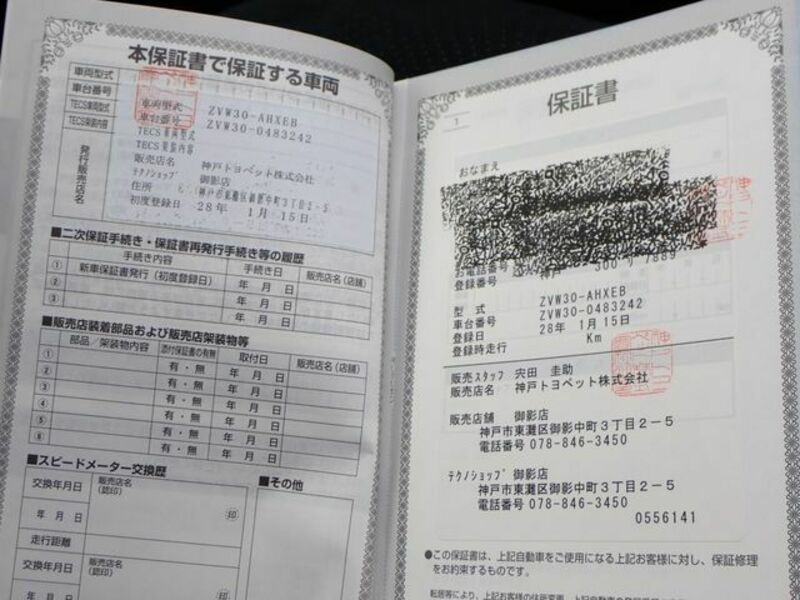 本保証書で保証する車両
車両型式
車台番号
TECS車両型式
TECS架装内容
発行販売店名
車両型式 ZVW30-AHXEB
車台番号 ZVW30-0483242
TECS車両型式
TECS架装内容
販売店名 神戸トヨペット株式会社
テクノショップ 御影店
住所 神戸市東灘区御影中町3丁目2-5
初度登録日 28年 1月15日
■二次保証手続き・保証書再発行手続き等の履歴
手続き内容 手続き日 販売店名(店舗)
① 新車保証書発行(初度登録日) 年 月 日
② 年 月 日
③ 年 月 日
■販売店装着部品および販売店架装物等
部品/架装物内容 添付保証書の有無 取付日 販売店名(店舗)
① 有・無 年 月 日
② 有・無 年 月 日
③ 有・無 年 月 日
④ 有・無 年 月 日
⑤ 有・無 年 月 日
⑥ 有・無 年 月 日
■スピードメーター交換歴
交換年月日 販売店名(認印)
年 月 日 印
走行距離
交換年月日 販売店名(認印)
年 月 日 印
■その他
保証書
1
おなまえ
お電話番号
登録番号 神戸 300 7889
型式 ZVW30-AHXEB
車台番号 ZVW30-0483242
登録日 28年 1月15日
登録時走行 Km
販売スタッフ 宍田 圭助
販売店名 神戸トヨペット株式会社
販売店舗 御影店
神戸市東灘区御影中町3丁目2-5
電話番号 078-846-3450
テクノショップ 御影店
神戸市東灘区御影中町3丁目2-5
電話番号 078-846-3450
0556141
●この保証書は、上記自動車をご使用になる上記お客様に対し、保証修理
をお約束するものです。
転居等により、上記お客様の住所変更、上記自動車の